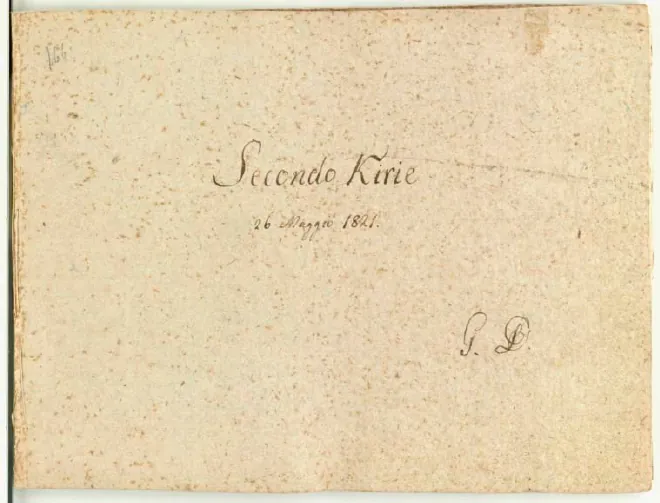 166.
Secondo Kirie
26 Maggio 1821.
G. D.